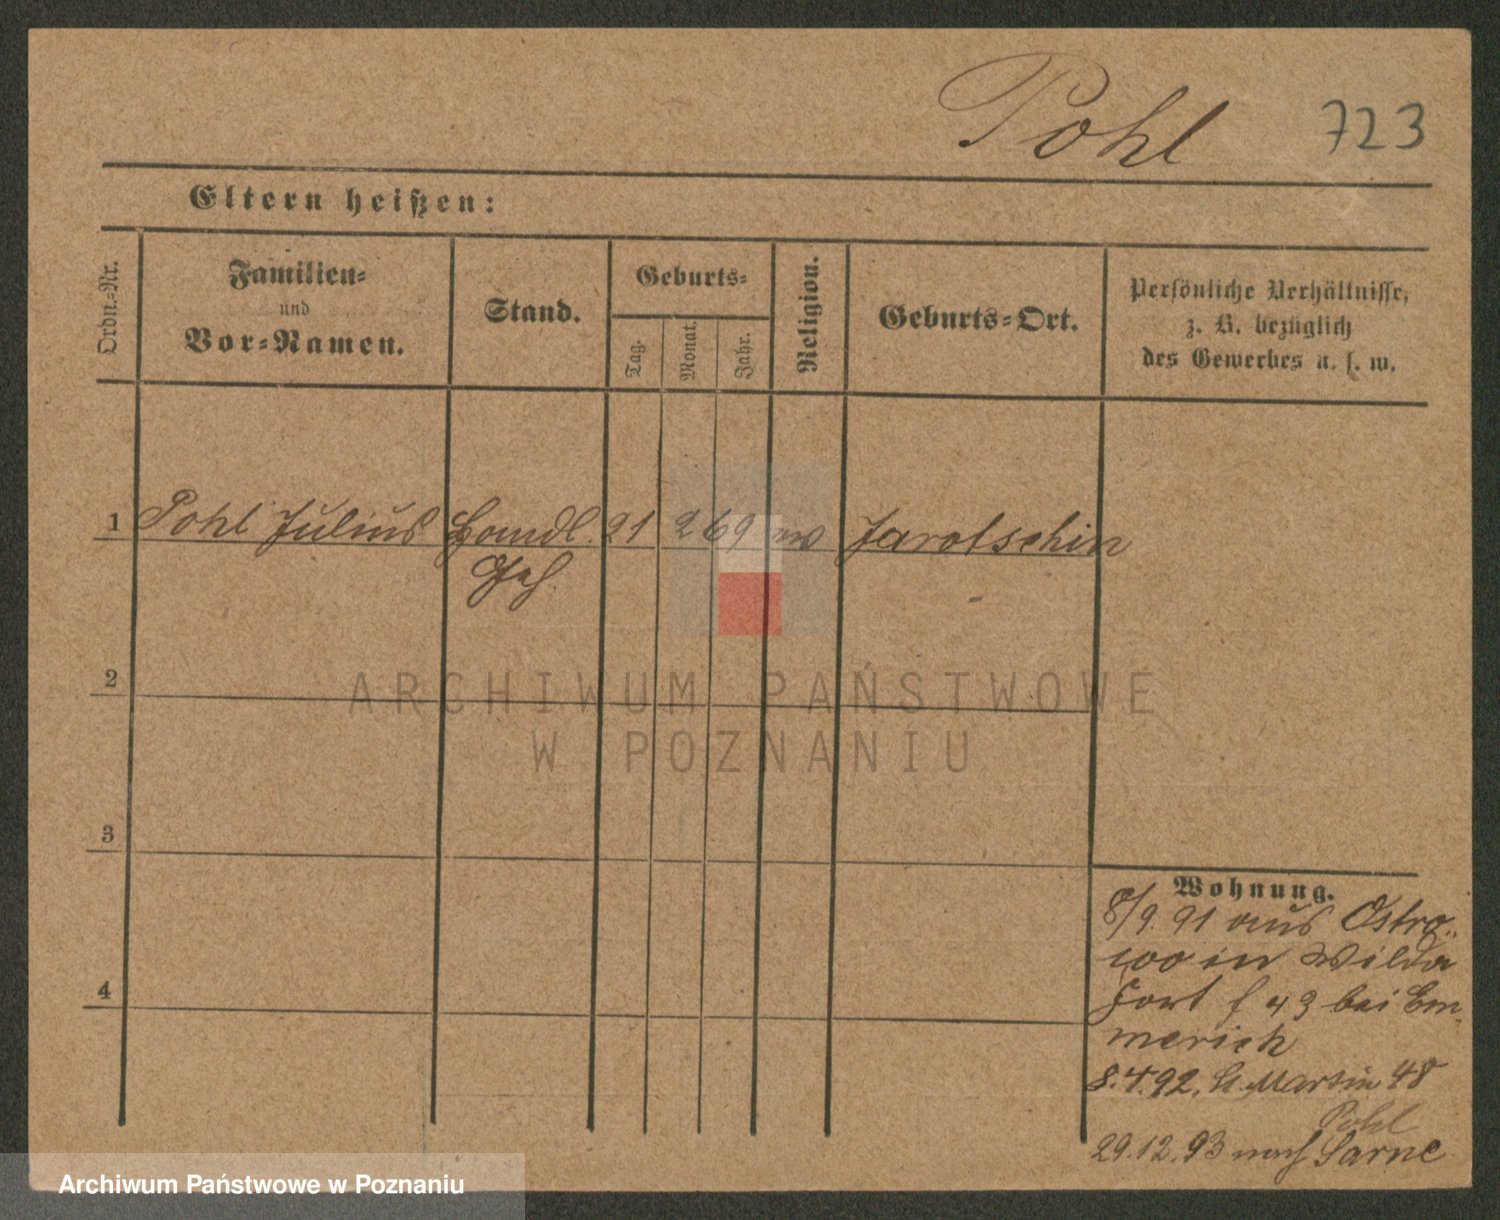 Pohl 723
Eltern heißen:
Ordn.-Nr.
Familien-
und
Vor-Namen.
Stand.
Geburts-
Tag.
Monat.
Jahr.
Religion.
Geburts-Ort.
Persönliche Verhältnisse,
z. B. bezüglich
des Gewerbes u. s. w.
1 Pohl Julius Handl. 21 2 69 Jarotschin
Geh.
2
ARCHIWUM PAŃSTWOWE
W POZNANIU
3
Wohnung.
8/9. 91 aus Ostro-
wo in Wilda
4
bei Em-
merich
8.4.92. St. Martin 48
Pohl
29.12.93 nach Sarne
Archiwum Państwowe w Poznaniu